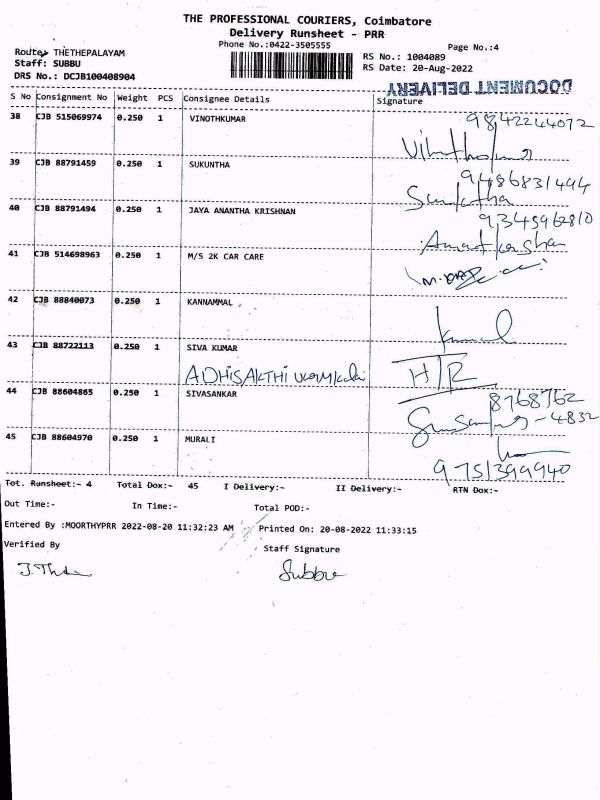 THE PROFESSIONAL COURIERS, Coimbatore
Delivery Runsheet - PRR
Phone No.:0422-3505555
Page No.:4
Route: THETHEPALAYAM
RS No.: 1004089
Staff: SUBBU
RS Date: 20-Aug-2022
DRS No.: DCJB100408904
DOCUMENT DELIVERY
S No Consignment No Weight PCS Consignee Details Signature
38 CJB 515069974 0.250 1 VINOTHKUMAR 9842244072
39 CJB 88791459 0.250 1 SUKUNTHA 9486831494
40 CJB 88791494 0.250 1 JAYA ANANTHA KRISHNAN 9345962810
41 CJB 514698963 0.250 1 M/S 2K CAR CARE
42 CJB 88840073 0.250 1 KANNAMMAL
43 CJB 88722113 0.250 1 SIVA KUMAR
ADHISAKTHI H/R
44 CJB 88604865 0.250 1 SIVASANKAR 8768762
-4832
45 CJB 88604970 0.250 1 MURALI
9751399940
Tot. Runsheet:- 4 Total Dox:- 45 I Delivery:- II Delivery:- RTN Dox:-
Out Time:- In Time:- Total POD:-
Entered By :MOORTHYPRR 2022-08-20 11:32:23 AM Printed On: 20-08-2022 11:33:15
Verified By Staff Signature
Subbu